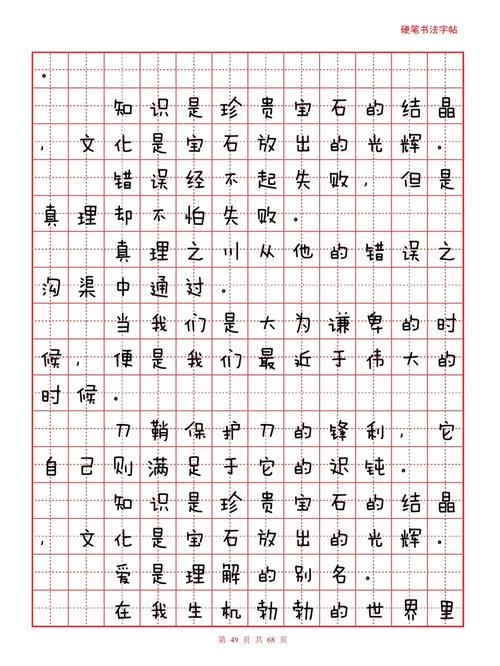 硬笔书法字帖
。
知识是珍贵宝石的结晶
，文化是宝石放出的光辉。
错误经不起失败，但是
真理却不怕失败。
真理之川从他的错误之
沟渠中通过。
当我们是大为谦卑的时
候，便是我们最近于伟大的
时候。
刀鞘保护刀的锋利，它
自己则满足于它的迟钝。
知识是珍贵宝石的结晶
，文化是宝石放出的光辉。
爱是理解的别名。
在我生机勃勃的世界里
第 49 页 共 68 页